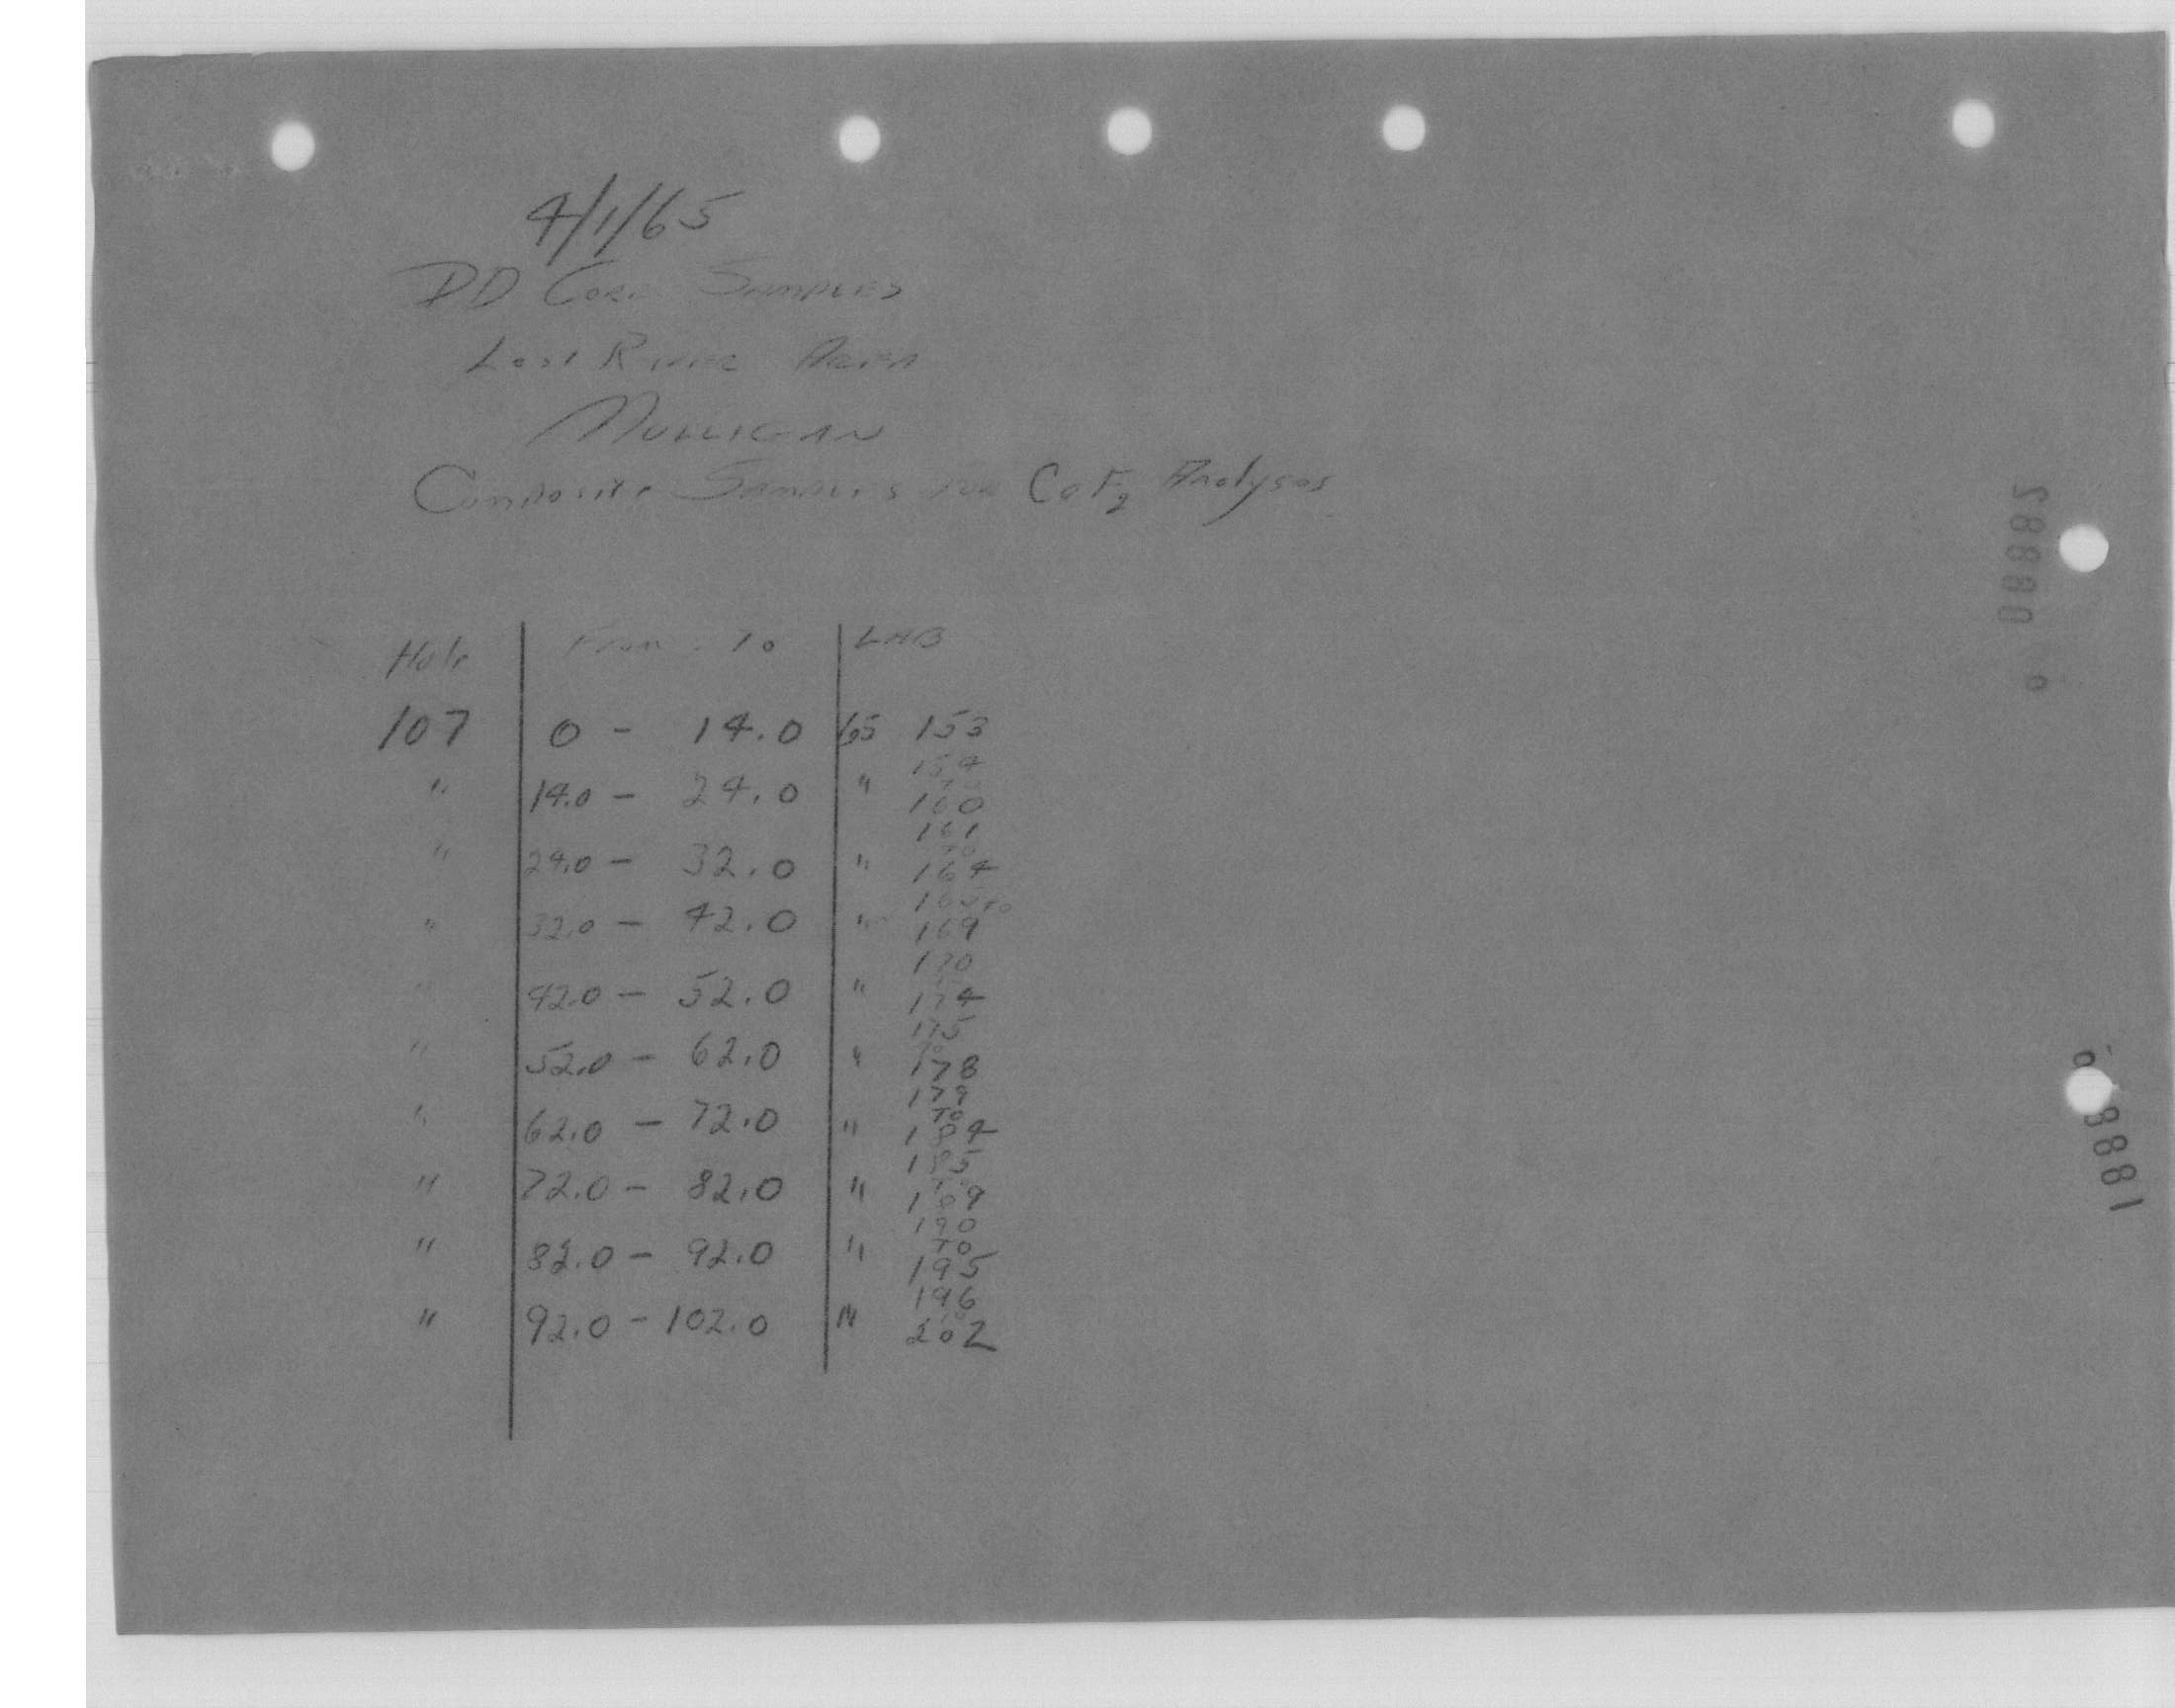 4/1/65
DD Core Samples
Lost River Area
Mulligan
Composite Samples for CaF2 Analyses
Hole From - To LAB
107 0 - 14.0 65 153
" 14.0 - 24.0 " 154 to 160
" 24.0 - 32.0 " 161 to 164
" 32.0 - 42.0 " 165 to 169
" 42.0 - 52.0 " 170 174
" 52.0 - 62.0 " 175 to 178
" 62.0 - 72.0 " 179 to 184
" 72.0 - 82.0 " 185 to 189
" 82.0 - 92.0 " 190 to 195
" 92.0 - 102.0 " 196 to 202